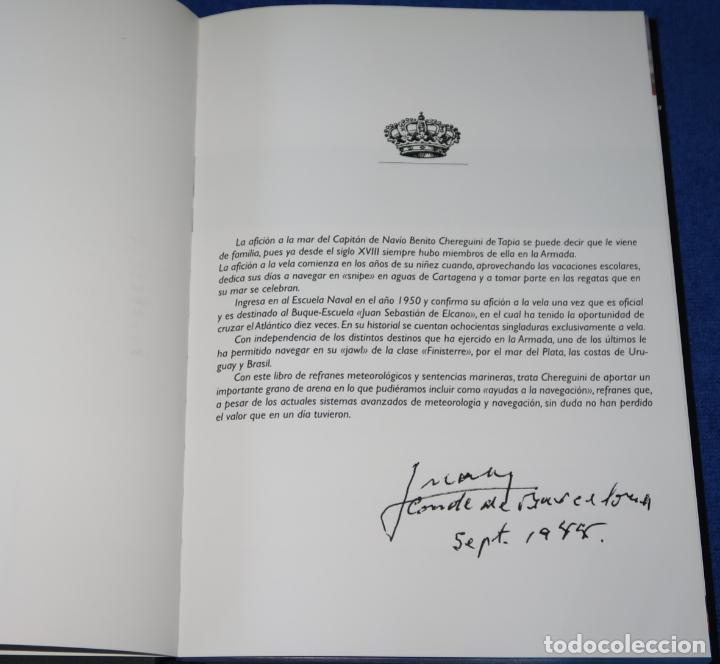 La afición a la mar del Capitán de Navío Benito Chereguini de Tapia se puede decir que le viene
de familia, pues ya desde el siglo XVIII siempre hubo miembros de ella en la Armada.
La afición a la vela comienza en los años de su niñez cuando, aprovechando las vacaciones escolares,
dedica sus días a navegar en «snipe» en aguas de Cartagena y a tomar parte en las regatas que en
su mar se celebran.
Ingresa en al Escuela Naval en el año 1950 y confirma su afición a la vela una vez que es oficial
y es destinado al Buque-Escuela «Juan Sebastián de Elcano», en el cual ha tenido la oportunidad de
cruzar el Atlántico diez veces. En su historial se cuentan ochocientas singladuras exclusivamente a vela.
Con independencia de los distintos destinos que ha ejercido en la Armada, uno de los últimos le
ha permitido navegar en su «jawl» de la clase «Finisterre», por el mar del Plata, las costas de Uru-
guay y Brasil.
Con este libro de refranes meteorológicos y sentencias marineras, trata Chereguini de aportar un
importante grano de arena en lo que pudiéramos incluir como «ayudas a la navegación», refranes que,
a pesar de los actuales sistemas avanzados de meteorología y navegación, sin duda no han perdido
el valor que en un día tuvieron.
Juan
Conde de Barcelona
Sept. 1988.
todocoleccion